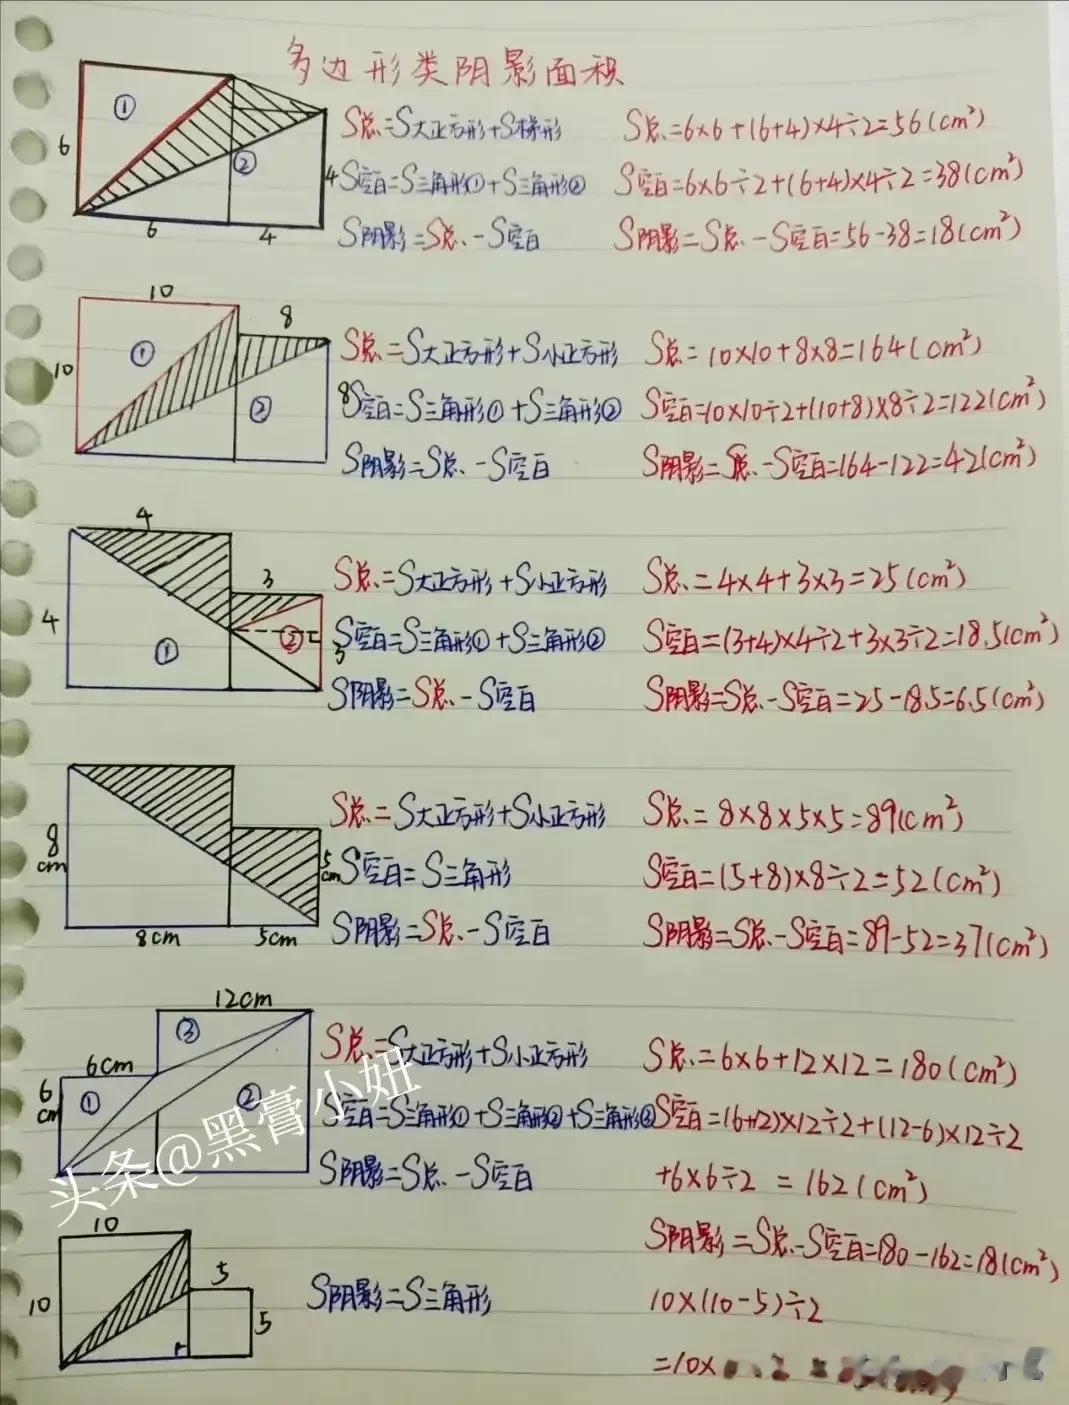 多边形类阴影面积
① ② 6 6 4 4
S总=S大正方形+S梯形 S总=6×6+(6+4)×4÷2=56(cm²)
S空白=S三角形①+S三角形② S空白=6×6÷2+(6+4)×4÷2=38(cm²)
S阴影=S总-S空白 S阴影=S总-S空白=56-38=18(cm²)
10 8 10 ① ② 8
S总=S大正方形+S小正方形 S总=10×10+8×8=164(cm²)
S空白=S三角形①+S三角形② S空白=10×10÷2+(10+8)×8÷2=122(cm²)
S阴影=S总-S空白 S阴影=S总-S空白=164-122=42(cm²)
4 3 4 ① ② 3
S总=S大正方形+S小正方形 S总=4×4+3×3=25(cm²)
S空白=S三角形①+S三角形② S空白=(3+4)×4÷2+3×3÷2=18.5(cm²)
S阴影=S总-S空白 S阴影=S总-S空白=25-18.5=6.5(cm²)
8cm 5cm 8cm 5cm
S总=S大正方形+S小正方形 S总=8×8×5×5=89(cm²)
S空白=S三角形 S空白=(5+8)×8÷2=52(cm²)
S阴影=S总-S空白 S阴影=S总-S空白=89-52=37(cm²)
12cm 6cm 6cm ① ② ③
S总=S大正方形+S小正方形 S总=6×6+12×12=180(cm²)
S空白=S三角形①+S三角形②+S三角形③ S空白=(6+12)×12÷2+(12-6)×12÷2
S阴影=S总-S空白 +6×6÷2=162(cm²)
S阴影=S总-S空白=180-162=18(cm²)
头条@黑膏小妞
10 10 5 5
S阴影=S三角形 10×(10-5)÷2
=10×